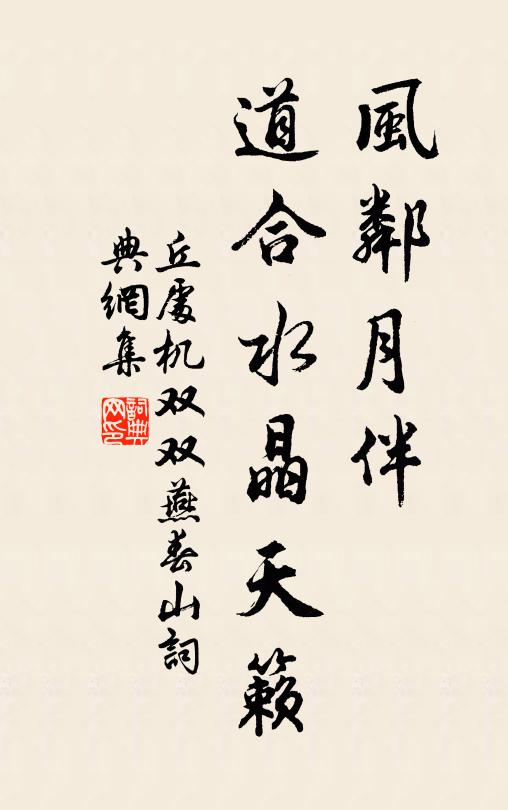 風鄰月伴
道合水晶天籟
丘處机双双燕春山詞
典網集
詞典
网印